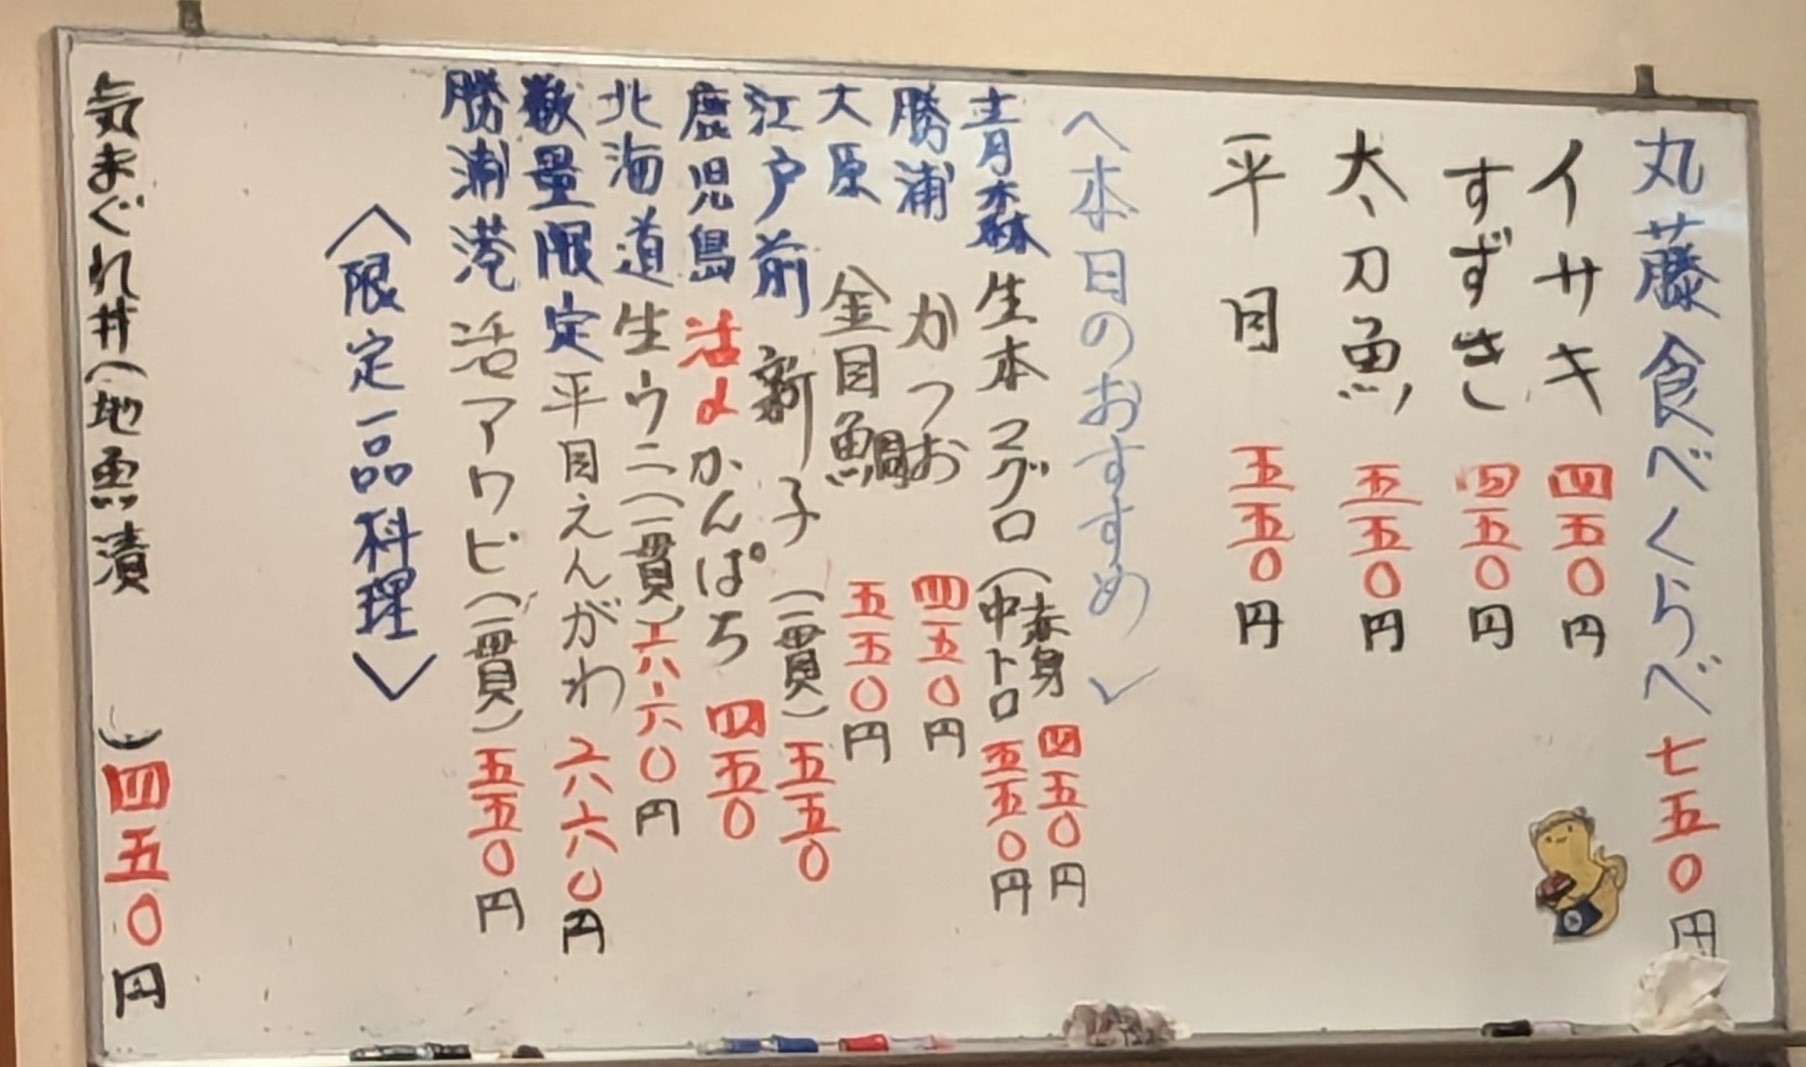 丸藤食べくらべ七五〇円
イサキ 四五〇円
すずき 四五〇円
太刀魚 五五〇円
平目 五五〇円
〈本日のおすすめ〉
青森 生本マグロ(赤身 四五〇円
中トロ 五五〇円
勝浦 かつお 四五〇円
大原 金目鯛 五五〇円
江戸前 新子(一貫)五五〇
鹿児島 活〆かんぱち 四五〇
北海道 生ウニ(一貫)六六〇円
数量限定 平目えんがわ 六六〇円
勝浦港 活アワビ(一貫)五五〇円
〈限定一品料理〉
気まぐれ丼(地魚漬 )四五〇円